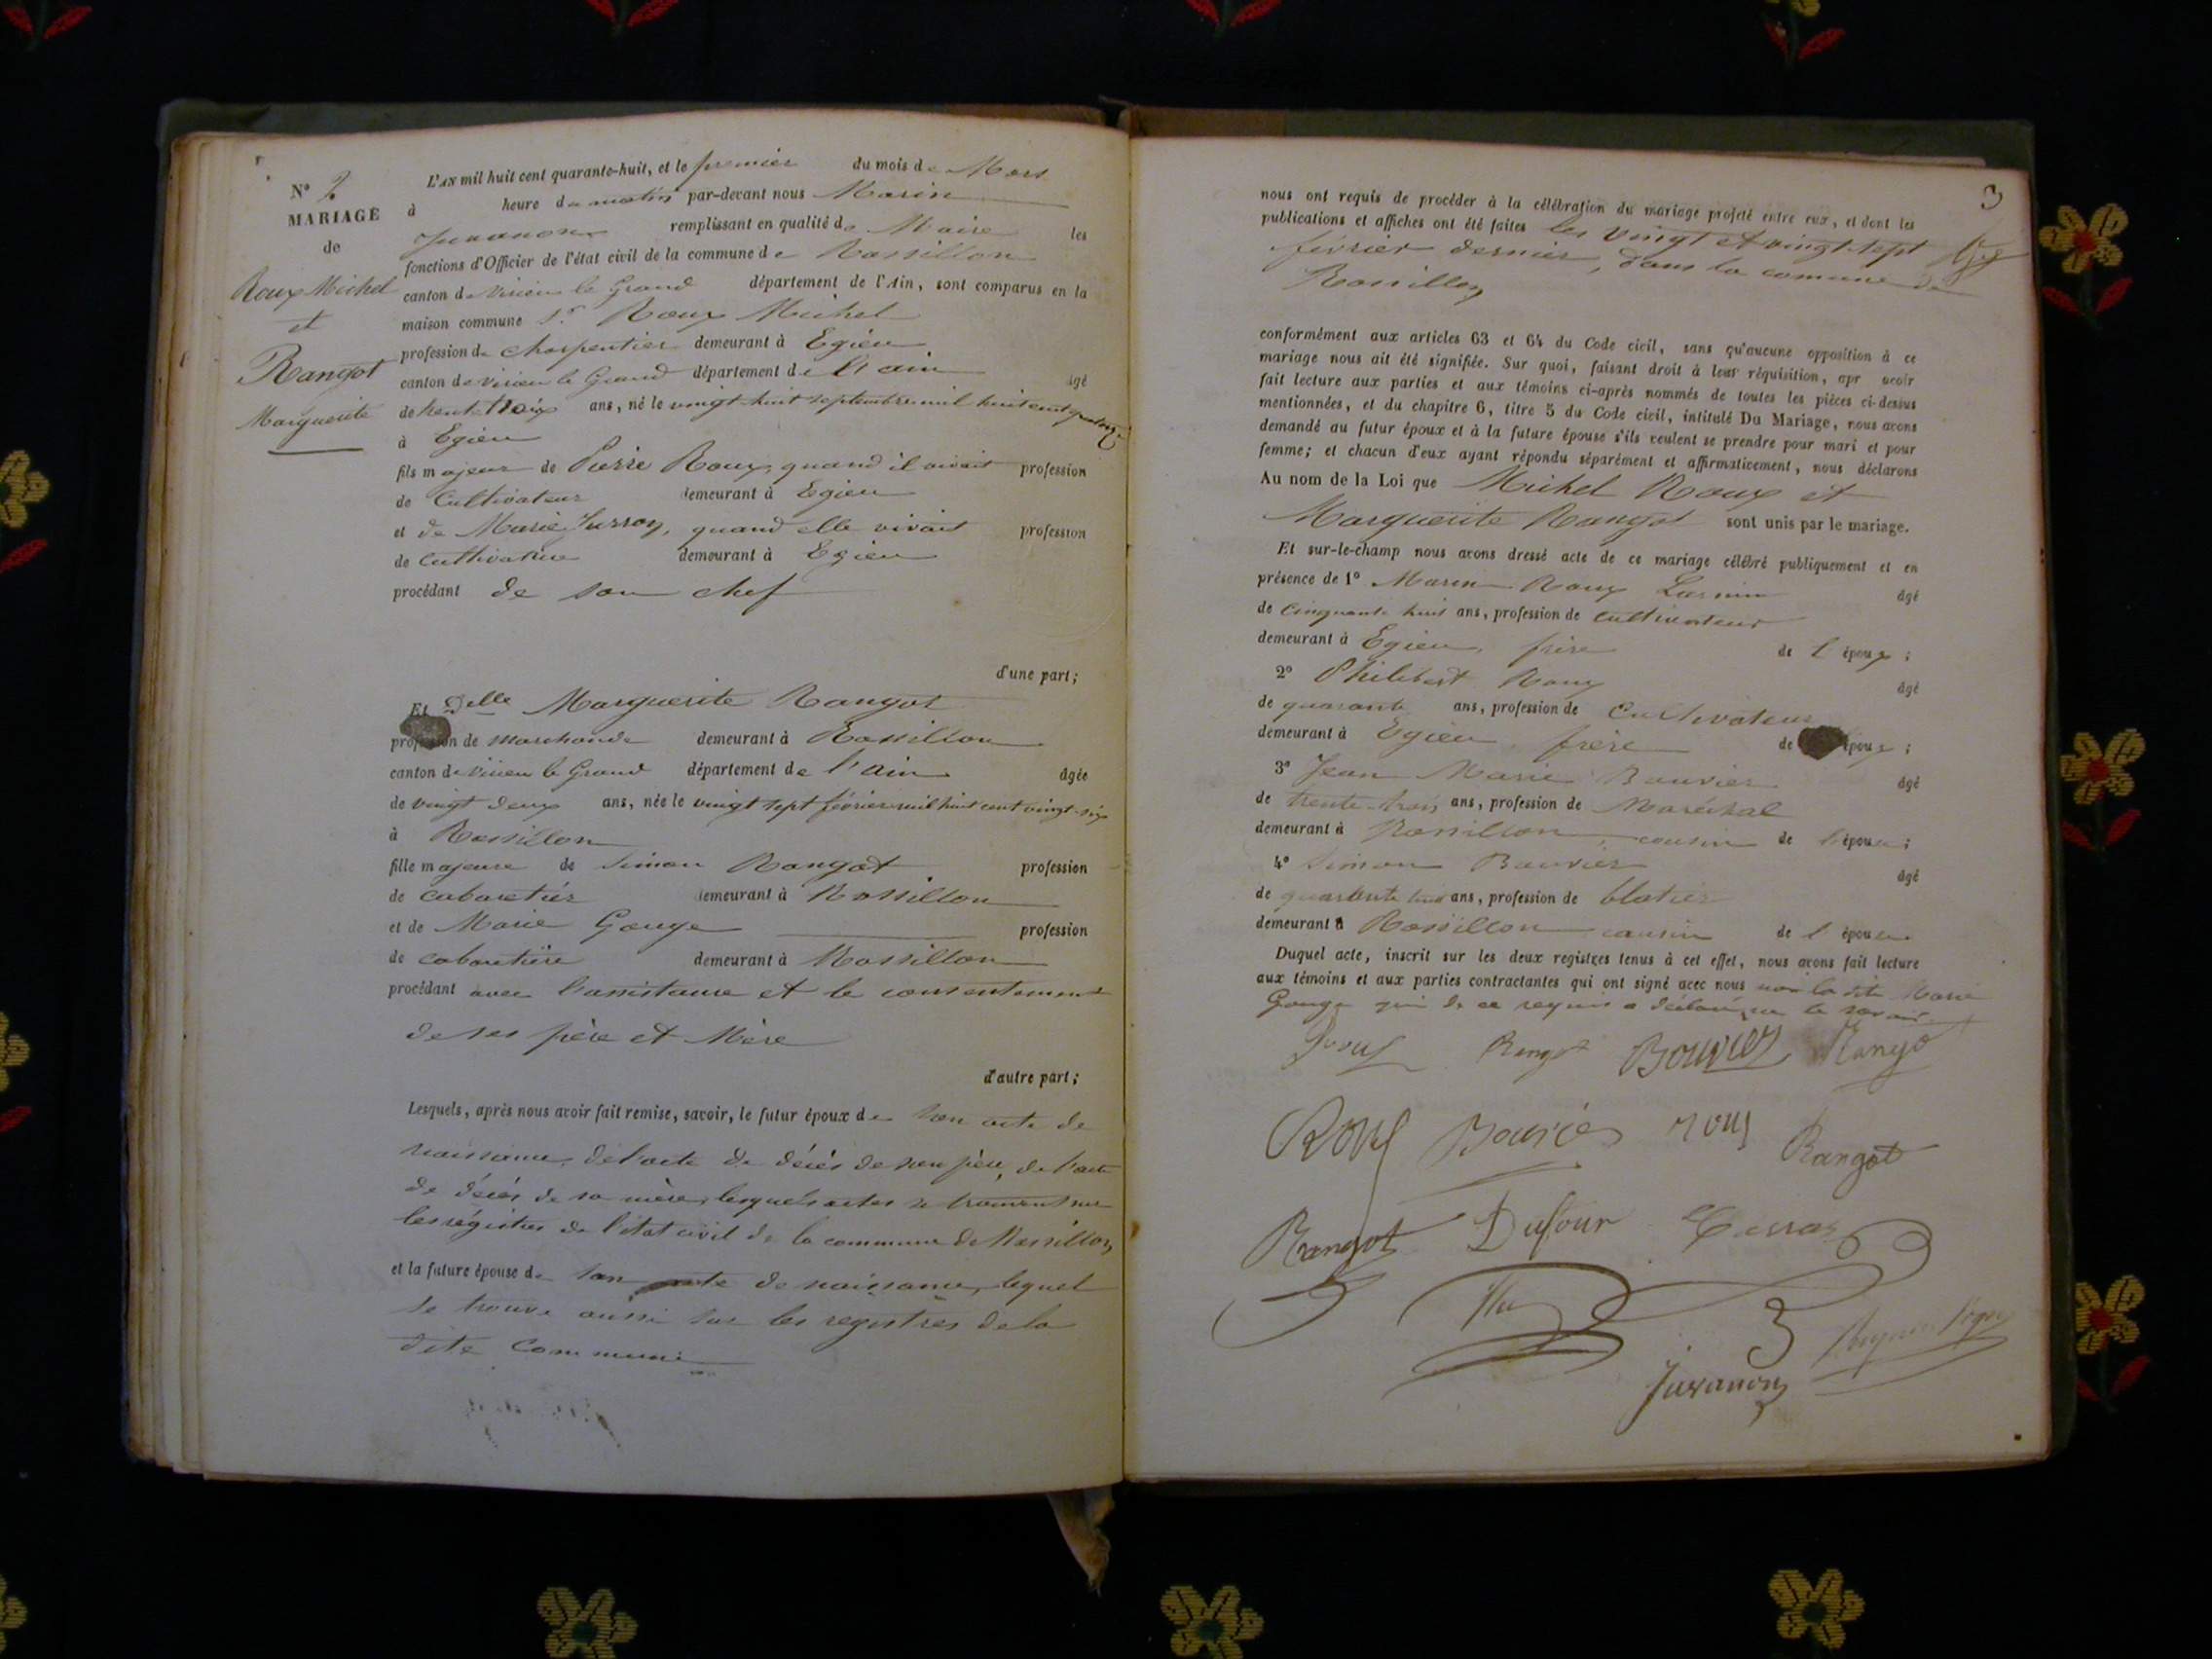 N° 2
MARIAGE
de
Roux Michel
et
Rangot
Marguerite
L'AN mil huit cent quarante-huit, et le premier du mois de Mars
à heure du matin par-devant nous Marin
Juvanon remplissant en qualité de Maire les
fonctions d'Officier de l'état civil de la commune de Rossillon
canton de Virieu le Grand département de l'Ain, sont comparus en la
maison commune Sr. Roux Michel
profession de charpentier demeurant à Egieu
canton de Virieu le Grand département de l'ain âgé
de trente trois ans, né le vingt-huit septembre mil huit cent quatorze
à Egieu
fils majeur de Pierre Roux, quand il vivait profession
de Cultivateur demeurant à Egieu
et de Marie, quand elle vivait profession
de Cultivatrice demeurant à Egieu
procédant de son chef
d'une part;
Et Delle Marguerite Rangot
profession de marchande demeurant à Rossillon
canton de Virieu le Grand département de l'ain âgée
de vingt deux ans, née le vingt sept février mil huit cent vingt-six
à Rossillon
fille majeure de Simon Rangot profession
de cabaretier demeurant à Rossillon
et de Marie Gouge profession
de cabaretière demeurant à Rossillon
procédant avec l'assistance et le consentement
de ses père et Mère
d'autre part;
Lesquels, après nous avoir fait remise, savoir, le futur époux de son acte de
naissance, de l'acte de décès de son père, de l'acte
de décès de sa mère, lesquels actes se trouvent sur
les régistres de l'état civil de la commune de Rossillon,
et la future épouse de son acte de naissance, lequel
se trouve aussi sur les registres de la
dite commune
3
nous ont requis de procéder à la célébration du mariage projeté entre eux, et dont les
publications et affiches ont été faites les vingt et vingt-sept
février dernier, dans la comune de
Rossillon
conformément aux articles 63 et 64 du Code civil, sans qu'aucune opposition à ce
mariage nous ait été signifiée. Sur quoi, faisant droit à leur réquisition, apr avoir
fait lecture aux parties et aux témoins ci-après nommés de toutes les pièces ci-dessus
mentionnées, et du chapitre 6, titre 5 du Code civil, intitulé Du Mariage, nous avons
demandé au futur époux et à la future épouse s'ils veulent se prendre pour mari et pour
femme; et chacun d'eux ayant répondu séparément et affirmativement, nous déclarons
Au nom de la Loi que Michel Roux et
Marguerite Rangot sont unis par le mariage.
Et sur-le-champ nous avons dressé acte de ce mariage célébré publiquement et en
présence de 1° Marin Roux âgé
de Cinquante huit ans, profession de cultivateur
demeurant à Egieu, frère de l'époux;
2° Philibert Roux âgé
de quarante ans, profession de Cultivateur
demeurant à Egieu, frère de époux;
3° Jean Marie Bouvier âgé
de trente-trois ans, profession de Maréchal
demeurant à Rossillon, cousin de l'épouse;
4° Simon Bouvier âgé
de quarante huit ans, profession de blatier
demeurant à Rossillon cousin de l'épouse
Duquel acte, inscrit sur les deux registres tenus à cet effet, nous avons fait lecture
aux témoins et aux parties contractantes qui ont signé avec nous non la dite Marie
Gouge qui de ce requise a déclaré ne le savoir.
Roux Rangot Bouvier Rango
Roux Bouvier roux Rangot
Rangot Dufour
Juvanon